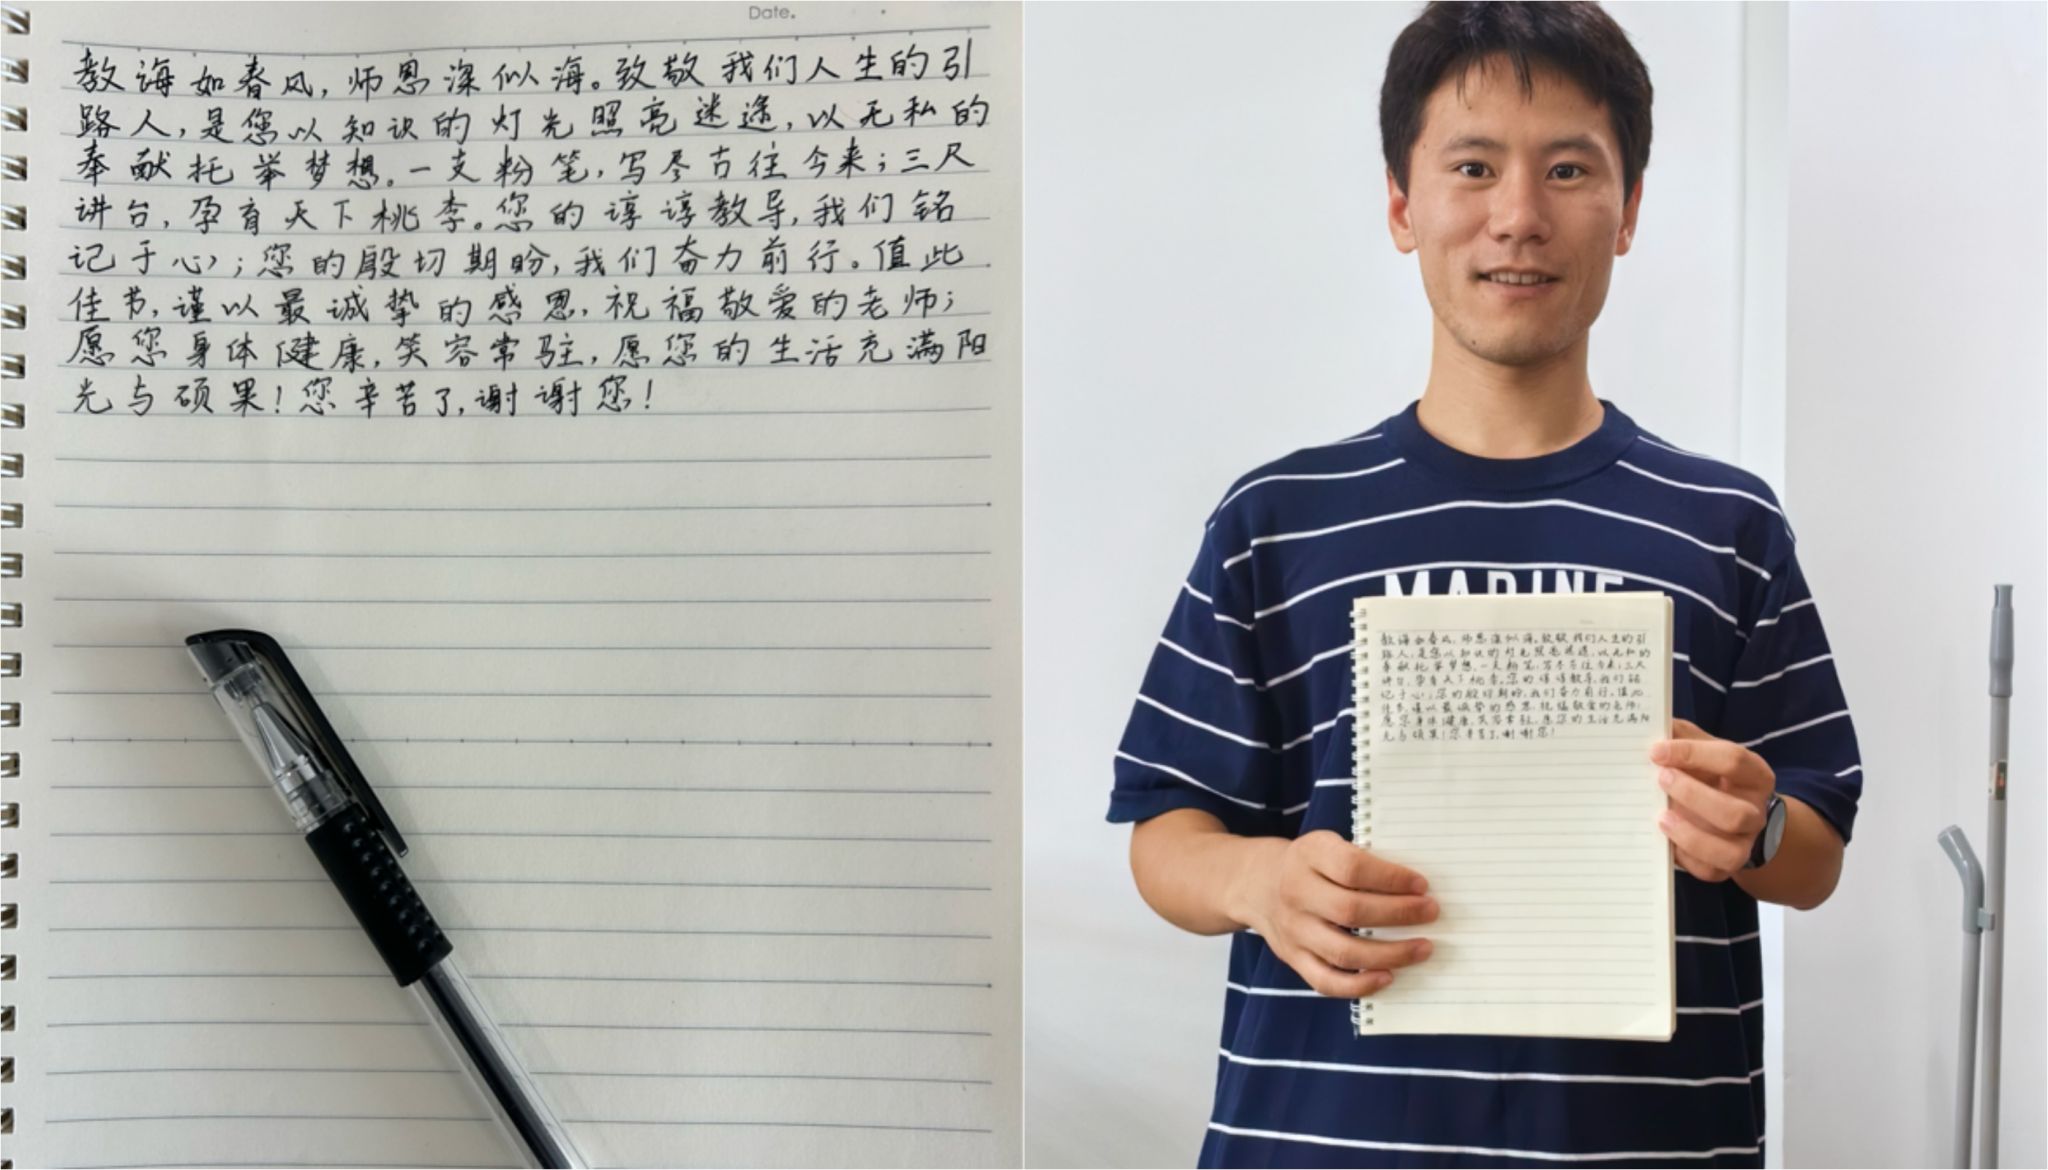 Date.
教诲如春风，师恩深似海。致敬我们人生的引
路人，是您以知识的灯光照亮迷途，以无私的
奉献托举梦想。一支粉笔，写尽古往今来；三尺
讲台，孕育天下桃李。您的谆谆教导，我们铭
记于心；您的殷切期盼，我们奋力前行。值此
佳节，谨以最诚挚的感恩，祝福敬爱的老师；
愿您身体健康，笑容常驻，愿您的生活充满阳
光与硕果！您辛苦了，谢谢您！
MARINE
教诲如春风，师恩深似海。致敬我们人生的引
路人，是您以知识的灯光照亮迷途，以无私的
奉献托举梦想。一支粉笔，写尽古往今来；三尺
讲台，孕育天下桃李。您的谆谆教导，我们铭
记于心；您的殷切期盼，我们奋力前行。值此
佳节，谨以最诚挚的感恩，祝福敬爱的老师；
愿您身体健康，笑容常驻，愿您的生活充满阳
光与硕果！您辛苦了，谢谢您！